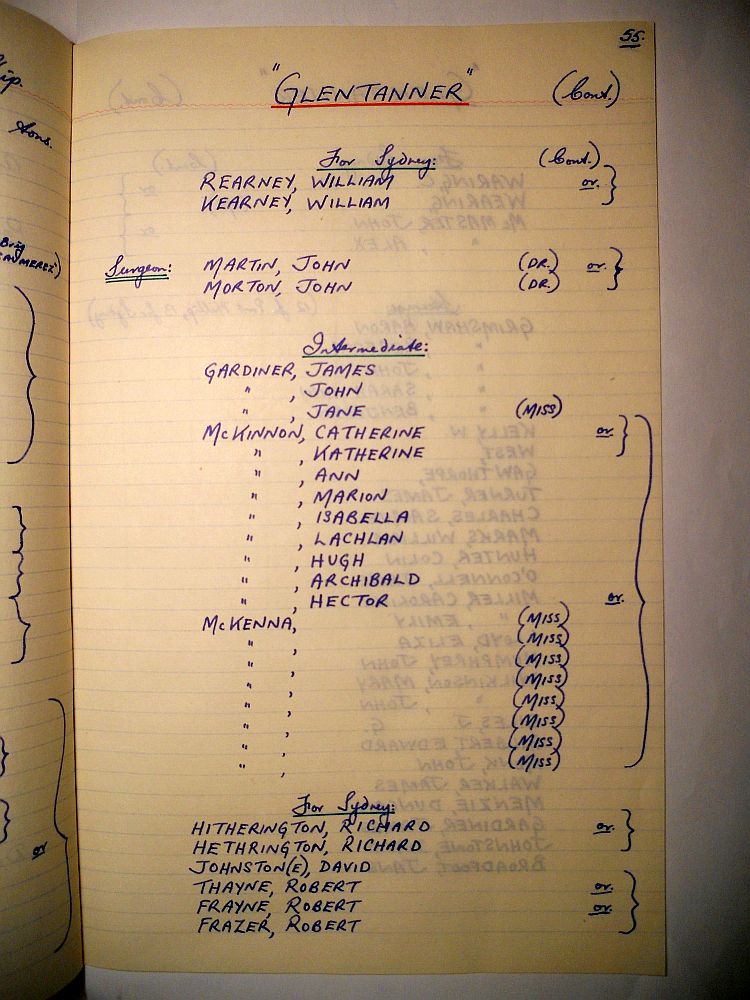 55.
"GLENTANNER" (Cont.)
For Sydney: (Cont.)
REARNEY, WILLIAM or. }
KEARNEY, WILLIAM
Surgeon: MARTIN, JOHN (DR.) or. }
MORTON, JOHN (DR.)
Intermediate:
GARDINER, JAMES
" , JOHN
" , JANE (MISS)
McKINNON, CATHERINE or. }
" , KATHERINE
" , ANN
" , MARION
" , ISABELLA
" , LACHLAN
" , HUGH
" , ARCHIBALD
" , HECTOR or.
McKENNA, (MISS)
" , (MISS)
" , (MISS)
" , (MISS)
" , (MISS)
" , (MISS)
" , (MISS)
" , (MISS)
For Sydney:
HITHERINGTON, RICHARD or. }
HETHRINGTON, RICHARD
JOHNSTON(E), DAVID
THAYNE, ROBERT or. }
FRAYNE, ROBERT or.
FRAZER, ROBERT